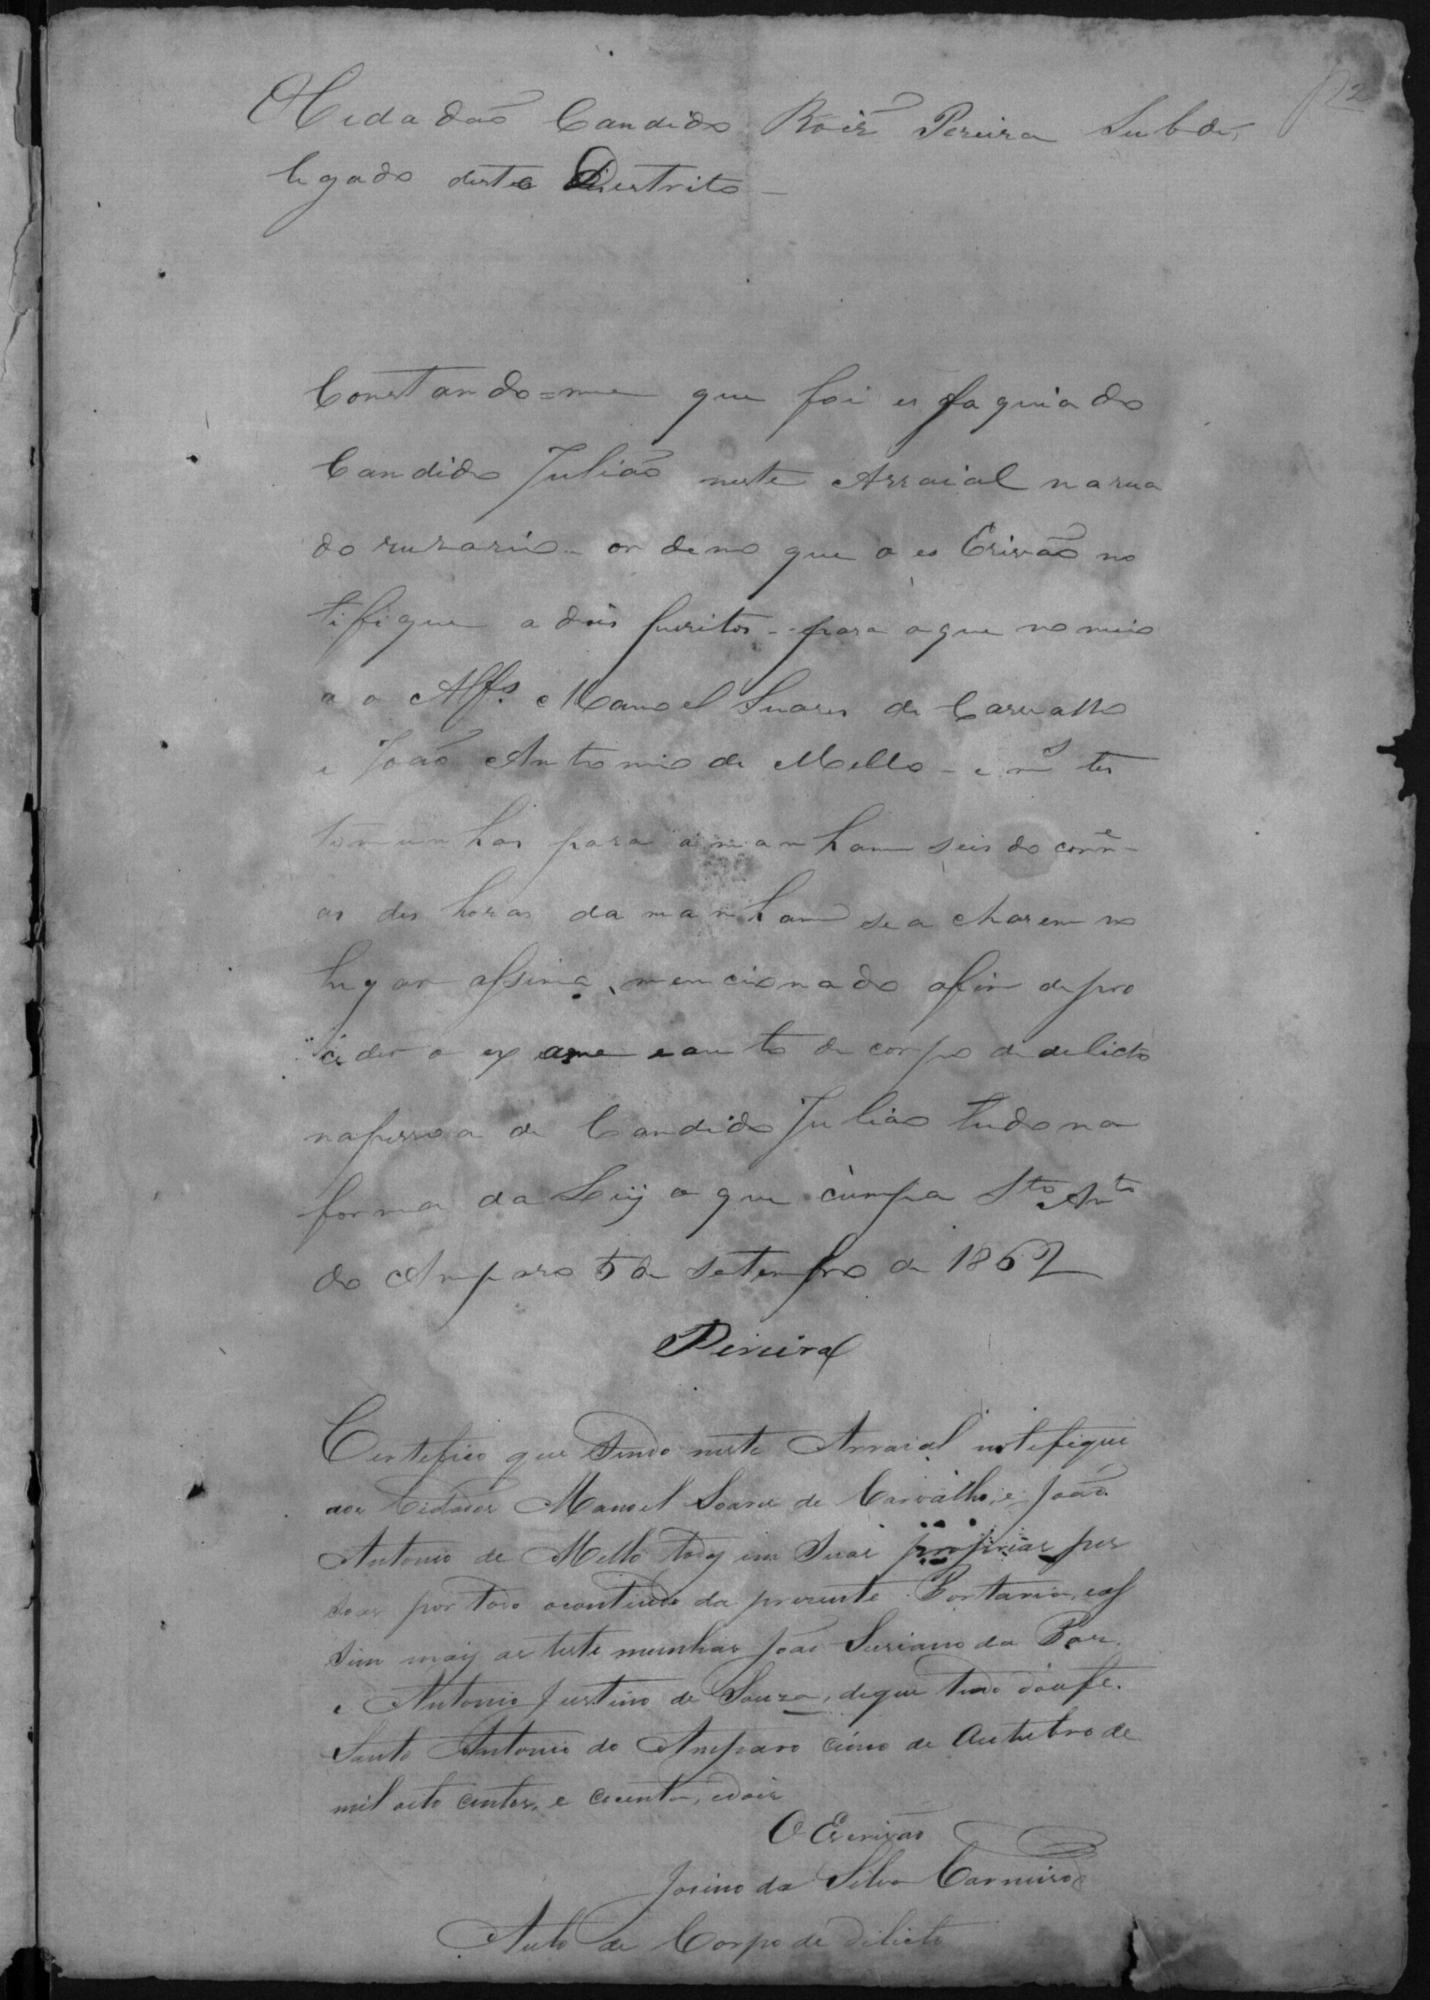 O Cidadão Candido Roiz Pereira Subde,
legado deste Districto —
Constando=me que foi esfaquiado
Candido Julião neste Arraial na rua
do ruzario - ordeno que o esCrivão no
tifique a dois peritos - para o que nomeio
a o Alfs. Manoel Suares de Carvalho
e João Antonio de Mello - e as tes
temunhas para amanham seis do corre.
as des horas da manham se acharem no
lugar assima mencionado afim de pro
ceder o exame e auto de corpo de delicto
na pessoa de Candido Julião tudo na
forma da Leij o que cumpra Sto. Anto.
do Amparo 5 de setembro de 1862
Pereira
Certefico que Sendo neste Arraial notefiquei
aos Cidadões Manoel Soares de Carvalho, e João
Antonio de Mello todos em Suas proprias pes
soas por todo o contiudo da prezente Portaria, e as
Sim mais as testemunhas João Suriano da
e Antonio Justino de Souza, de que tudo dou fe.
Santo Antonio do Amparo cinco de Autubro de
mil oito centos, e cecenta, e dois
O Escrivão
Josino da Silva Carneiro
Auto de Corpo de dilicto